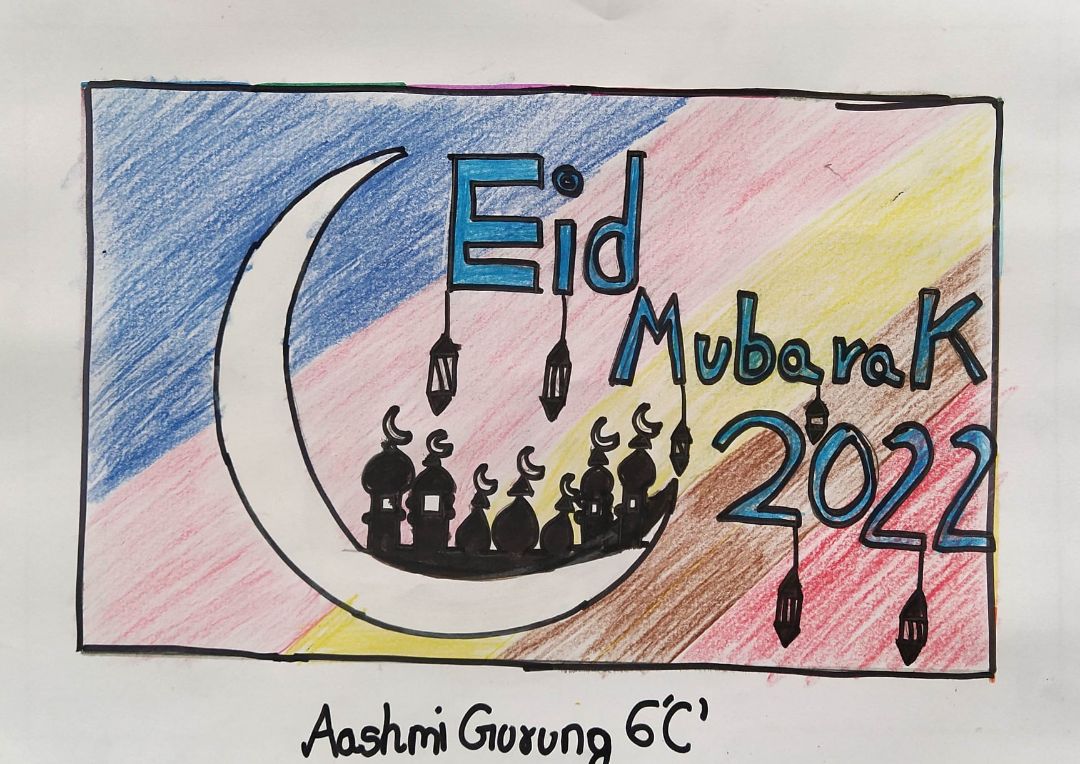 Eid
Mubarak
2022
Aashmi Gurung 6'C'